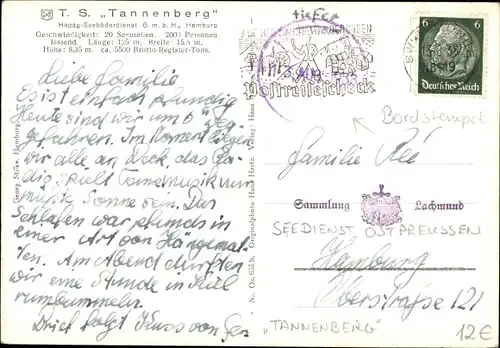 T. S. „Tannenberg"
Hapag-Seebäderdienst G.m.b.H., Hamburg
Geschwindigkeit: 20 Seemeilen. 2000 Personen
fassend. Länge: 125 m, Breite: 15.5 m.
Höhe: 6.35 m. ca. 5500 Brutto-Register-Tons.
Liebe Familie
Es ist einfach pfundig
Heute sind wir um 6 weg
gefahren. Im Moment liegen
wir alle an Deck das Ra-
dio spielt Tanzmusik nur
müsste Sonne sein. Das
Schlafen war pfunds in
einer Art von Hängemat-
ten. Am Abend durften
wir eine Stunde in Kiel
rumbummeln.
Brief folgt Kuss von
Georg Stilke, Hamburg
Nr. Os. 635b. Originalphoto Hans Hartz. Verlag: Hans
tiefer
Postreisescheck
6 6
Deutsches Reich
Bordstempel
Familie
Sammlung Lachmund
SEEDIENST OSTPREUSSEN
Hamburg
Oberstraße 121
„TANNENBERG"
12€